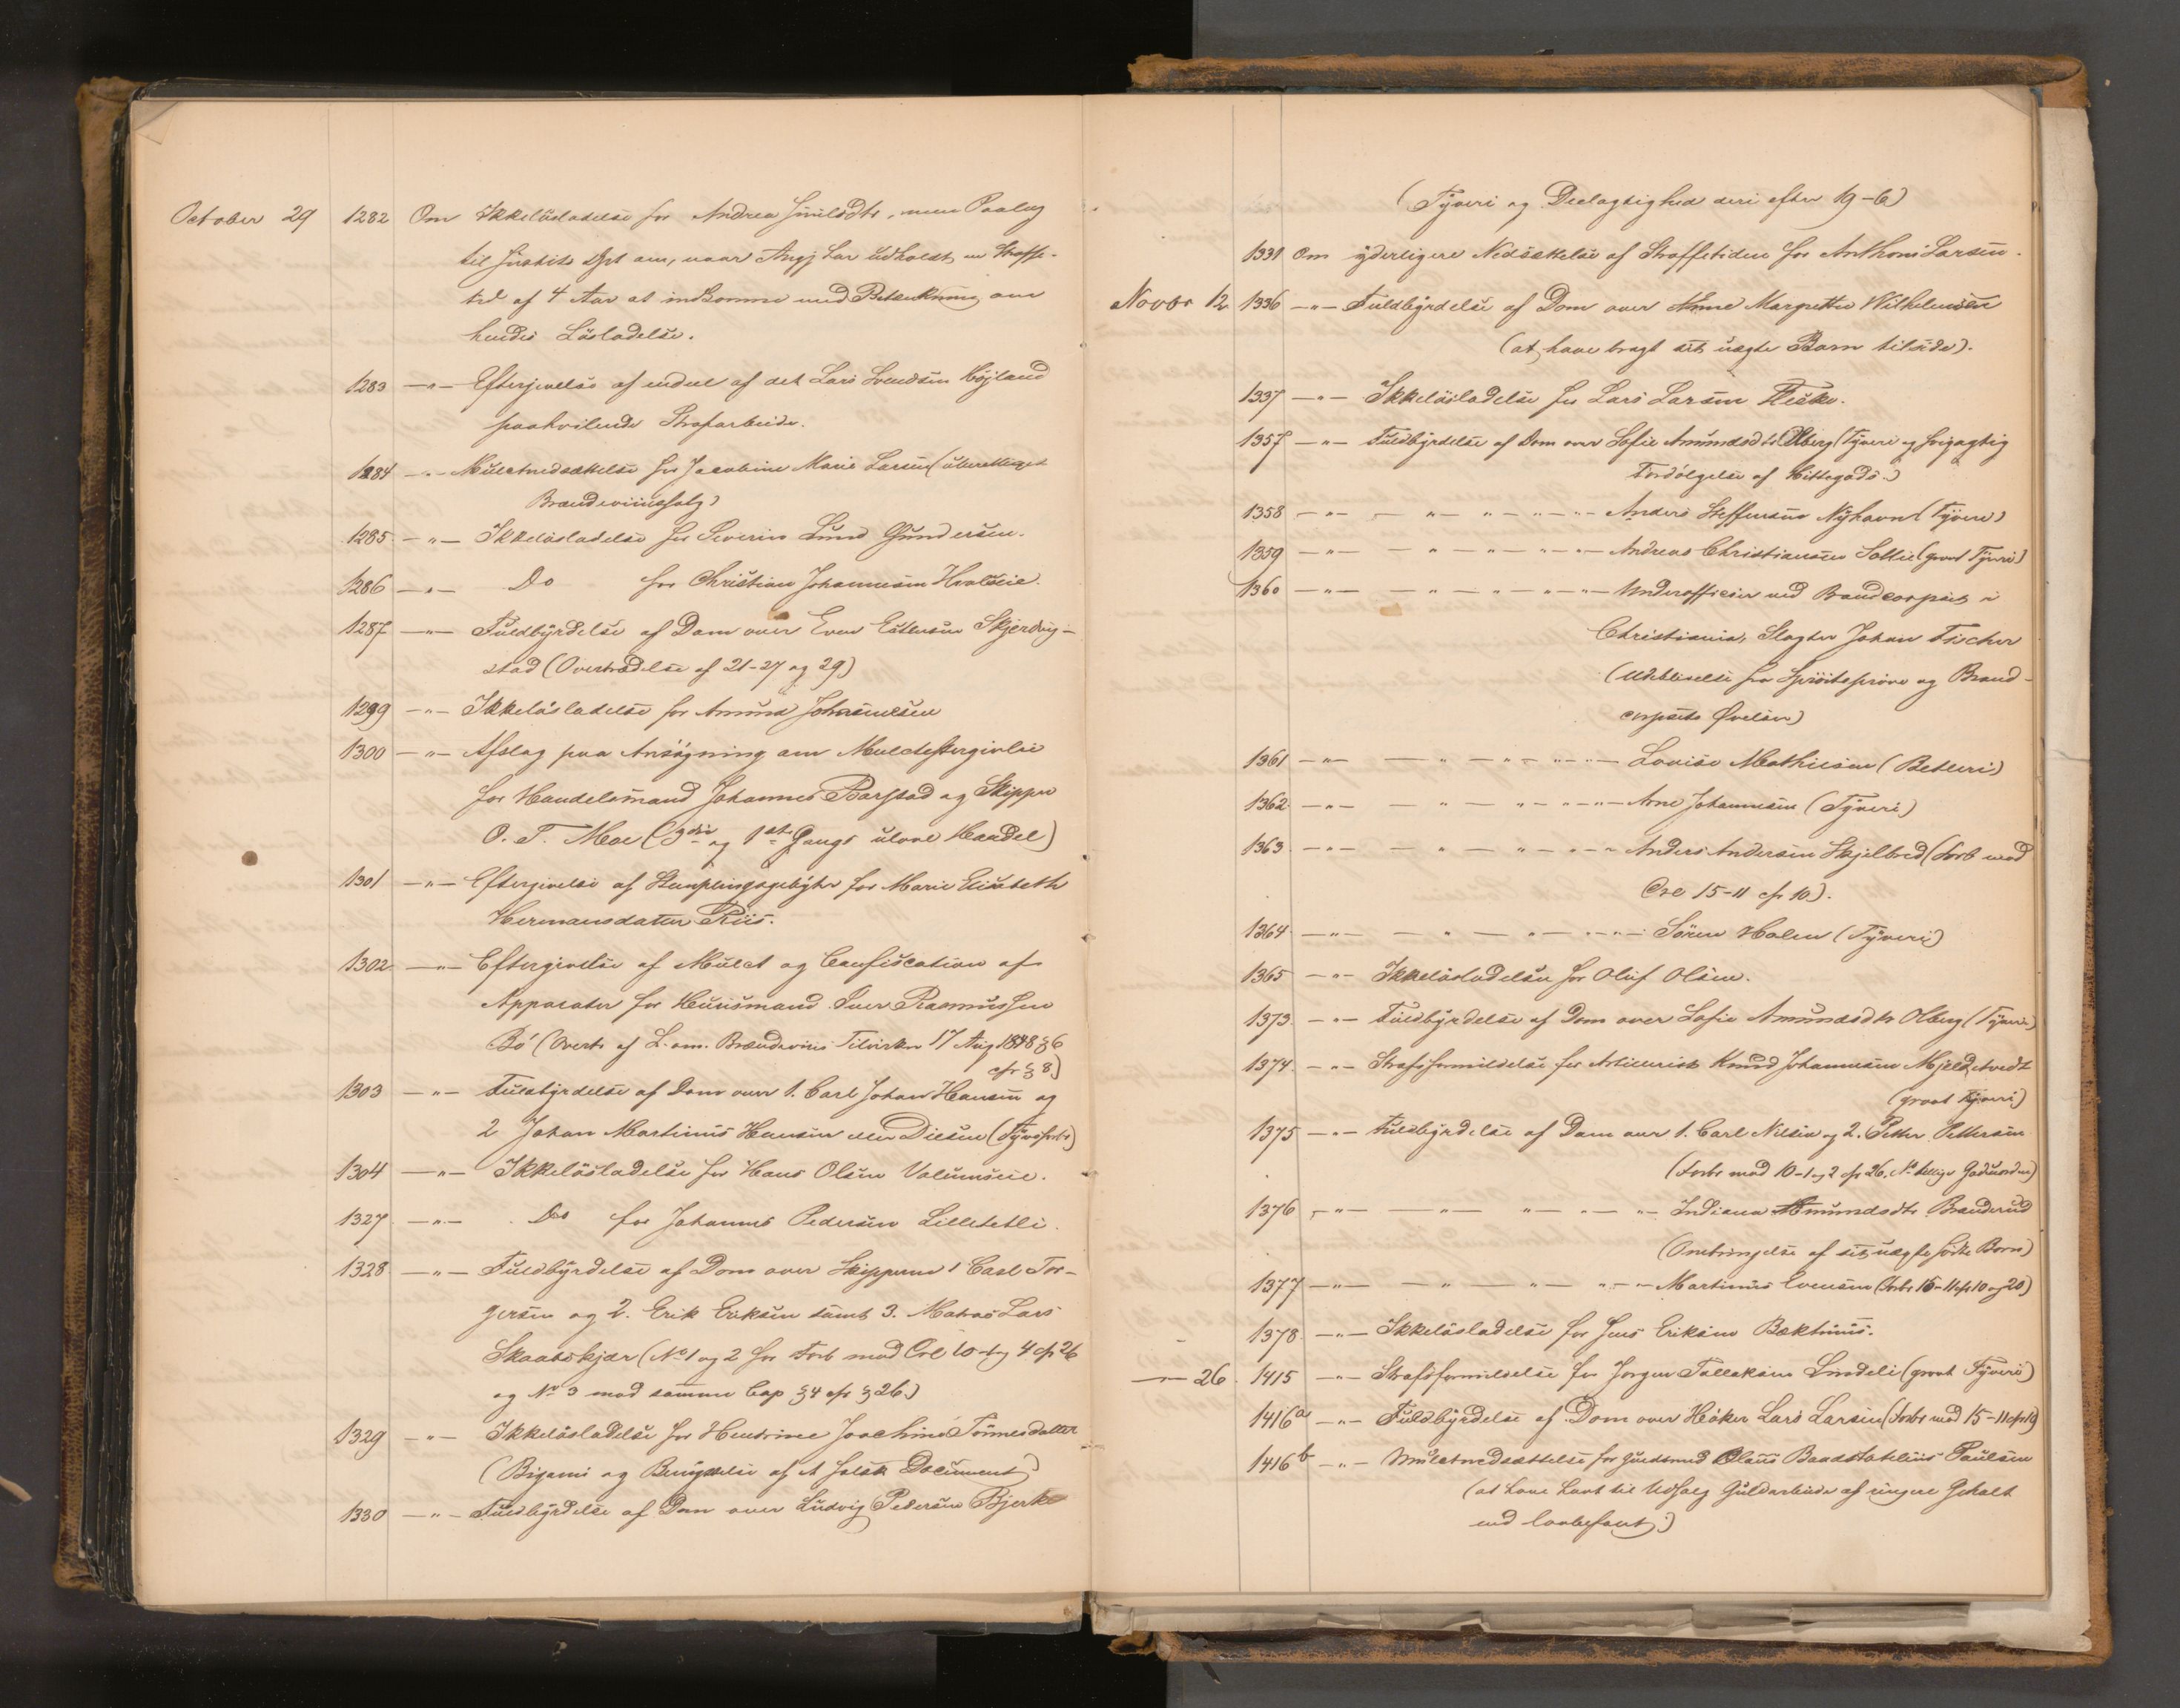 October 29 1282 Om Ikkelösladelse for Andrea Juulsdtr, men Paalæg
til Justits Dpt om, naar Angj har udholdt en Straffe-
tid af 4 Aar at indkomme med Betænkning om
hendes Lösladelse.
1283 —„— Eftergivelse af endeel af det Lars Svendsen Höjland
paahvilende Strafarbeide.
1284 —„— Mulctnedsættelse for Jacobine Marie Larsen (uberettiget
Brændeviinssalg)
1285 —„— Ikkelösladelse for Severin Lund Gundersen.
1286 —„— Do for Christian Johannesen Hvalseie.
1287 —„— Fuldbyrdelse af Dom over Even Estensen Skjerdvig-
stad (Overtrædelse af 21-27 og 29)
1299 —„— Ikkelösladelse for Amund Johannesen
1300 —„— Afslag paa Ansögning om Mulcteftergivelse
for Handelsmand Johannes Barstad og Skipper
O. T. Moe (3die og 1ste Gangs ulovl Handel)
1301 —„— Eftergivelse af Stemplingsgebyhr for Marie Elisabeth
Hermansdatter Riis.
1302 —„— Eftergivelse af Mulct og Confiscation af
Apparater for Huusmand Iver Rasmussen
Bö (Overtr af L. om Brændeviins Tilvirkn 17 Aug 1848 § 6
cfr § 8)
1303 —„— Fuldbyrdelse af Dom over 1. Carl Johan Hansen og
2 Johan Martinus Hansen eller Diesen (Tyvsforbr)
1304 —„— Ikkelösladelse for Hans Olsen Volumseie.
1327 —„— Do for Johannes Pedersen Lilletetli.
1328 —„— Fuldbyrdelse af Dom over Skipperne 1 Carl Tor-
gersen og 2. Erik Eriksen samt 3. Matros Lars
Skaatskjær (No 1 og 2 for Forb mod Crl 10-1 og 4 cfr 26
og No 3 mod samme Cap § 4 cfr § 26.)
1329 —„— Ikkelösladelse for Hendrine Joachime Tönnesdatter
(Bigami og Benyttelse af et falsk Document)
1330 —„— Fuldbyrdelse af Dom over Ludvig Pedersen Bjerke
(Tyveri og Deelagtighed deri efter 19-6)
1331 Om yderligere Nedsættelse af Straffetiden for Anthoni Larsen.
Novbr 12 1336 —„— Fuldbyrdelse af Dom over Anne Margrethe Wilhelmsen
(at have bragt sit uægte Barn tilside).
1337 —„— Ikkelösladelse for Lars Larsen Fleske.
1357 —„— Fuldbyrdelse af Dom over Sofie Amundsdtr Olberg (Tyveri og svigagtig
Fordölgelse af Hittegods.)
1358 —„— — „ — „ — „ — Anders Steffensen Nyhavn (Tyveri)
1359 —„— — „ — „ — „ — Andreas Christiansen Sollie (grovt Tyveri)
1360 —„— — „ — „ — „ — Underofficier ved Brandcorpset i
Christiania, Slagter Johan Fischer
(Udeblivelse fra Spröiteprøve og Brand-
corpsets Øvelser)
1361 —„— — „ — „ — „ — Lovise Mathiesen (Betleri)
1362 —„— — „ — „ — „ — Arne Johannesen (Tyveri)
1363 —„— — „ — „ — „ — Anders Andersen Skjelbred (Forb mod
Crl 15-11 cfr 10).
1364 —„— — „ — „ — „ — Sören Holen (Tyveri)
1365 —„— Ikkelösladelse for Oluf Olsen.
1373 —„— Fuldbyrdelse af Dom over Sofie Amundsdtr Olberg (Tyveri)
1374 —„— Strafsformildelse for Artillerist Knud Johannesen Mjeldstvedt
(grovt Tyveri)
1375 —„— Fuldbyrdelse af Dom over 1. Carl Nilsen og 2. Petter Pettersen
(Forbr mod 10-1 og 2 cfr 26. No 1 tillige Gadeuorden)
1376 —„— — „ — „ — „ — Indiana Amundsdtr Branderud
(Ombringelse af sit uægte födte Barn)
1377 —„— — „ — „ — „ — Martinus Evensen (Forbr 15-11 cfr 10 og 20)
1378 —„— Ikkelösladelse for Jens Eriksen Bækthuus.
—„— 26 1415 —„— Strafsformildelse for Jörgen Tallaksen Lindeli (grovt Tyveri)
1416a —„— Fuldbyrdelse af Dom over Höker Lars Larsen (Forbr mod 15-11 cfr 10)
1416b —„— Mulctnedsættelse for Guldsmed Olaus Paulsen
(at have havt til Udsalg Guldarbeide af ringere Gehalt
end lovbefalet.)